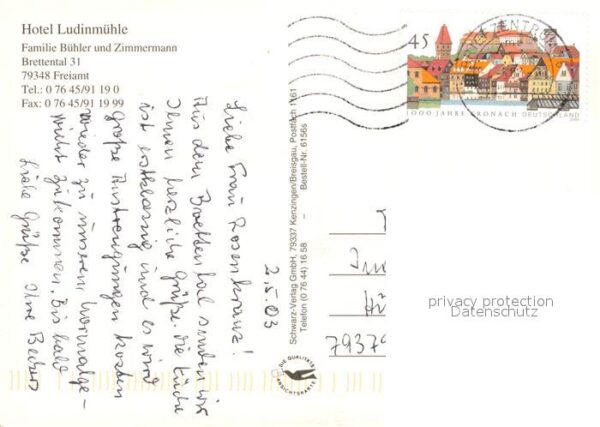 Hotel Ludinmühle
Familie Bühler und Zimmermann
Brettental 31
79348 Freiamt
Tel.: 0 76 45/91 19 0
Fax: 0 76 45/91 19 99
45
1000 JAHRE KRONACH DEUTSCHLAND
ZENTRUM
2.5.03
Liebe Frau Rosenkranz!
Aus dem Brettental senden wir
Ihnen herzliche Grüße. Die Küche
ist erstklassig und es wird
große Anstrengungen kosten
wieder zu unserem Normalge-
wicht zu kommen. Bis bald
Liebe Grüße Ihre
Schwarz-Verlag GmbH, 79337 Kenzingen/Breisgau, Postfach 1161
Telefon (0 76 44) 16 58 - Bestell-Nr. 6156s
DIE QUALITÄTS
ANSICHTSKARTE
7937
privacy protection
Datenschutz